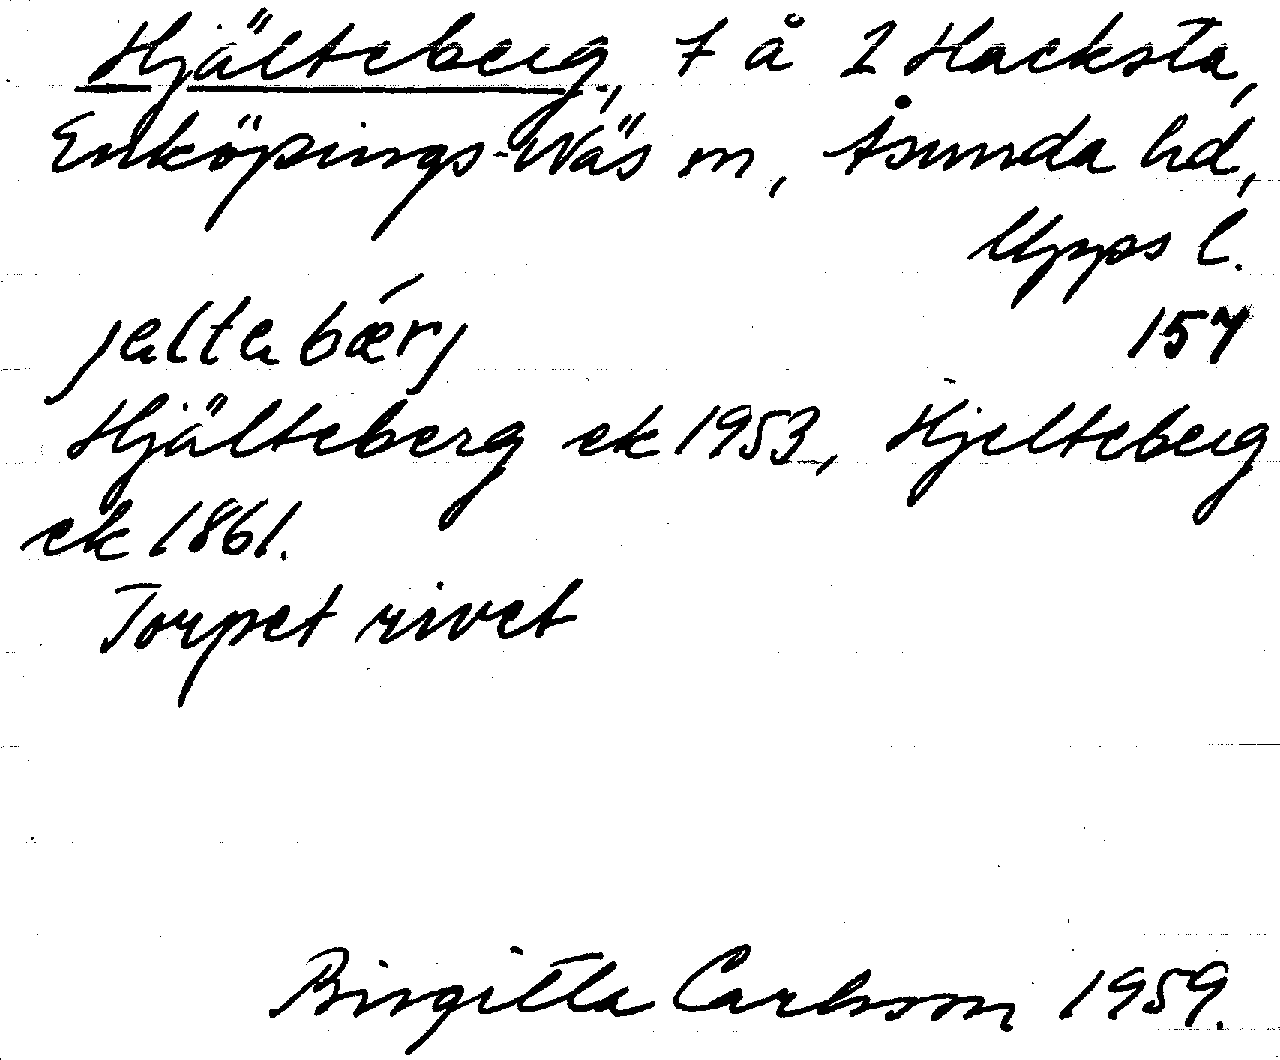 Hjälteberg, t å 2 Hacksta,
Enköpings-Näs sn, Åsunda hd,
Upps l.
jæltabǽrj 154
Hjälteberg ek 1953, Hjelteberg
ek 1861.
Torpet rivet
Birgitta Carlsson 1959.